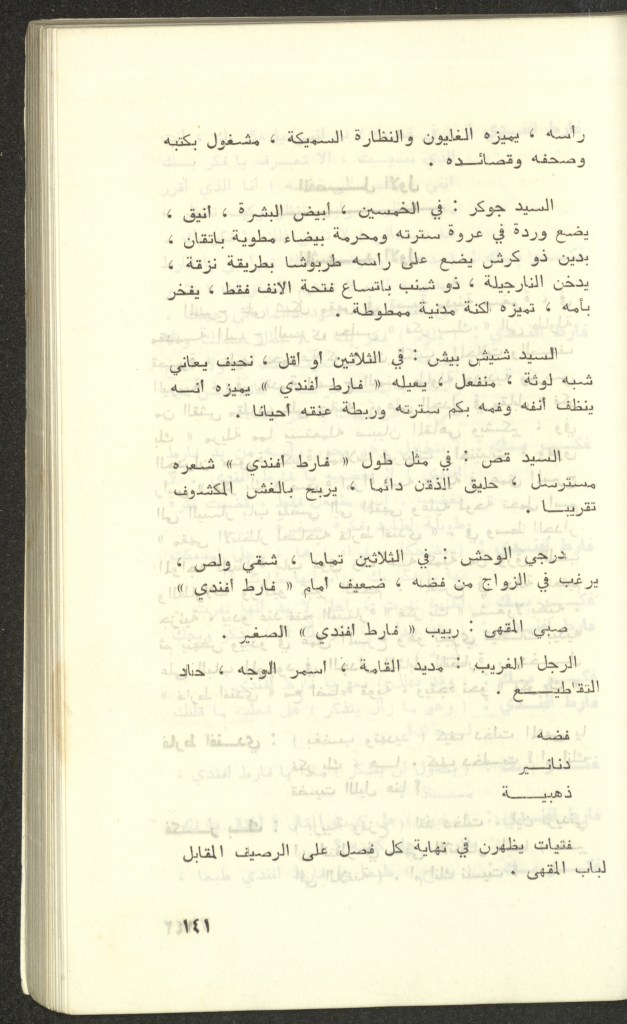 راسه ، يميزه الغليون والنظارة السميكة ، مشغول بكتبه
وصحفه وقصائـــده .
السيد جوكر : في الخمسين ، ابيض البشرة ، انيق ،
يضع وردة في عروة سترته ومحرمة بيضاء مطوية باتقان ،
بدين ذو كرش يضع على راسه طربوشا بطريقة نزقة ،
يدخن النارجيلة ، ذو شنب باتساع فتحة الانف فقط ، يفخر
بأمه ، تميزه لكنة مدنية ممطوطة .
السيد شيش بيش : في الثلاثين او اقل ، نحيف يعاني
شبه لوثة ، منفعل ، يعيله « فارط افندي » يميزه انــه
ينظف انفه وفمه بكم سترته وربطة عنقه احيانا .
السيد قص : في مثل طول « فارط افندي » شعره
مسترسل ، حليق الذقن دائما ، يربح بالغش المكشوف
تقريبــا .
درجي الوحش : في الثلاثين تماما ، شقي ولص ،
يرغب في الزواج من فضه ، ضعيف امام « فارط افندي »
صبي المقهى : ربيب « فارط افندي » الصغير .
الرجل الغريب : مديد القامة ، اسمر الوجه ، حاد
التقاطيـــع .
فضه
دنانـــير
ذهبيـــــة
فتيات يظهرن في نهاية كل فصل على الرصيف المقابل
لباب المقهى .
١٤١